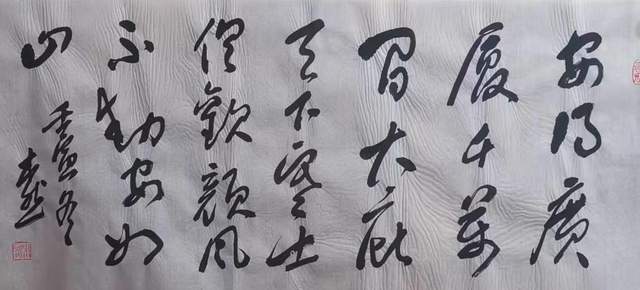 安得廣
厦千萬
間大庇
天下寒士
俱歡顏風
不動安如
山
壬寅冬